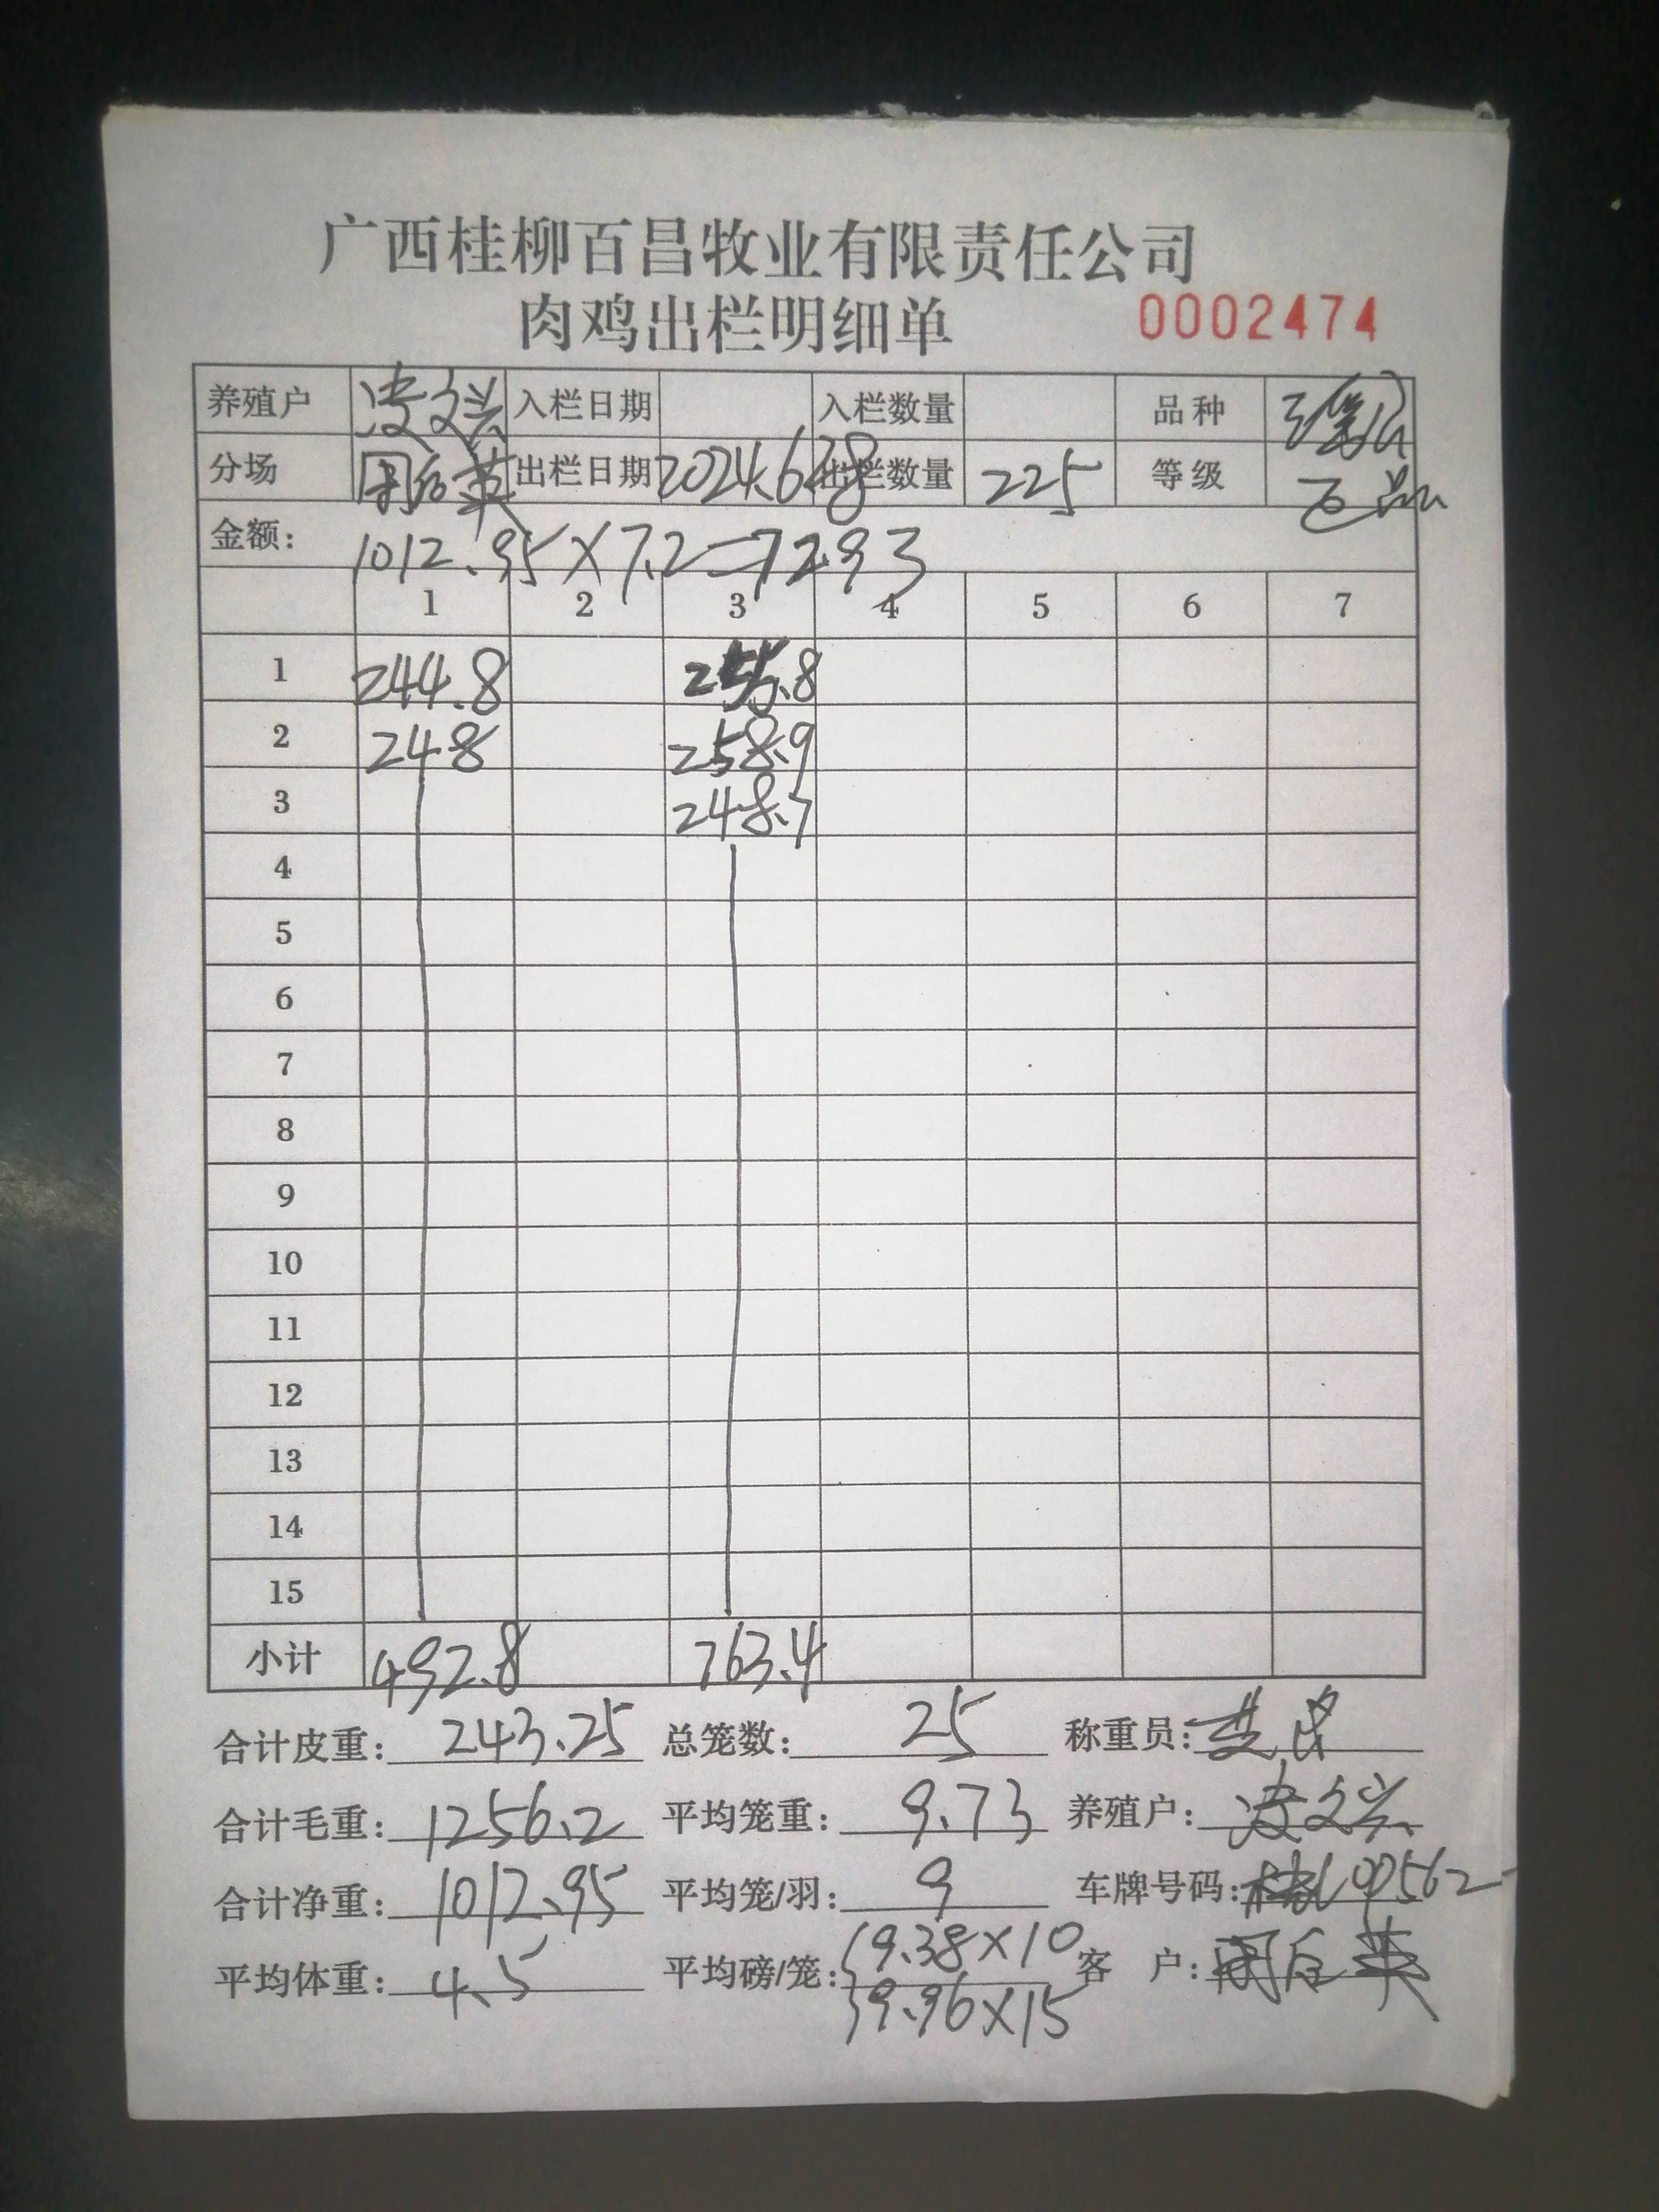 广西桂柳百昌牧业有限责任公司
肉鸡出栏明细单 0002474
养殖户 凌文兴 入栏日期 入栏数量 品种
分场 出栏日期 2024.6.28 出栏数量 225 等级
金额： 1012.95×7.2=7293
1 2 3 4 5 6 7
1 244.8 255.8
2 248 258.9
3 248.7
4
5
6
7
8
9
10
11
12
13
14
15
小计 492.8 763.4
合计皮重： 243.25 总笼数： 25 称重员：
合计毛重： 1256.2 平均笼重： 9.73 养殖户： 凌文兴
合计净重： 1012.95 平均笼/羽： 9 车牌号码：
平均体重： 4.5 平均磅/笼： 9.38×10 客 户：
9.96×15